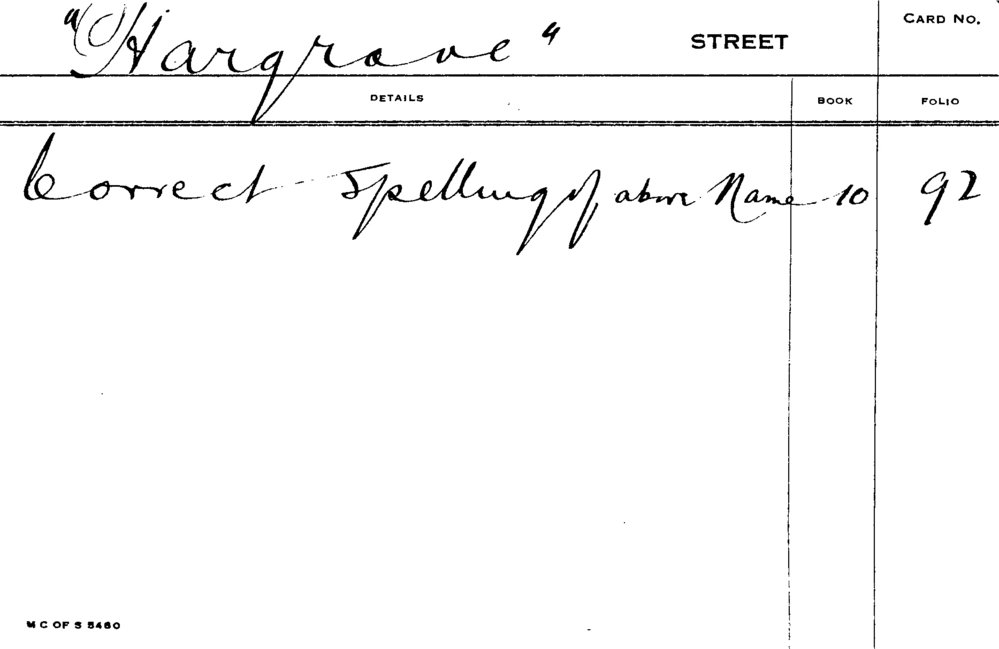 "Hargrave" STREET CARD NO.
DETAILS BOOK FOLIO
Correct Spelling of above Name 10 92
M C OF S 5460